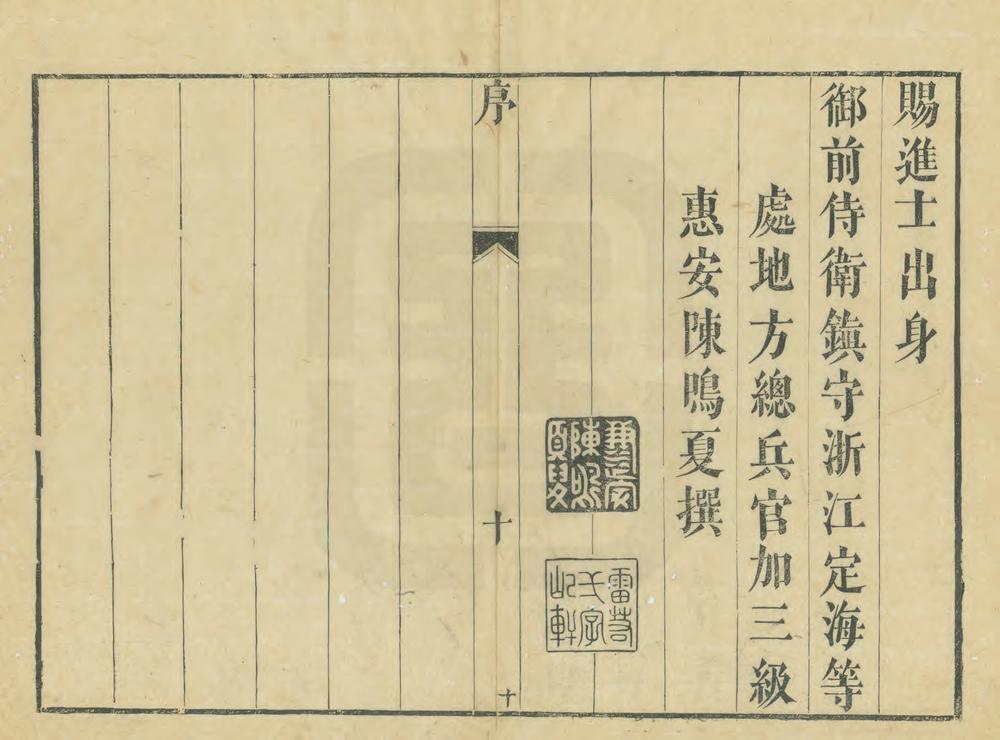 賜進士出身
御前侍衛鎭守浙江定海等
處地方總兵官加三級
惠安陳鳴夏撰
序
十
十